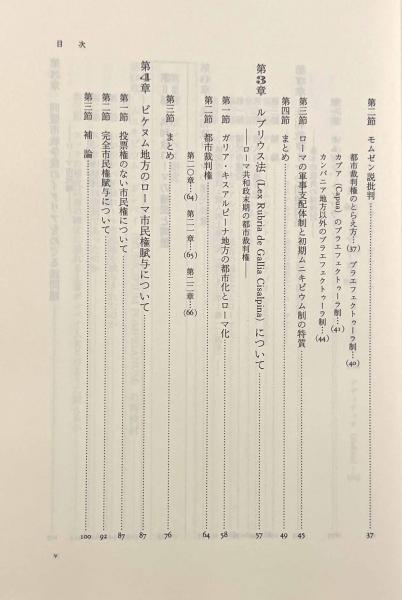 目次
第二節 モムゼン説批判……37
都市裁判権のとらえ方…(37) プラエフェクトゥーラ制…(40)
カプア (Capua) のプラエフェクトゥーラ制…(41)
カンパニア地方以外のプラエフェクトゥーラ制…(44)
第三節 ローマの軍事支配体制と初期ムニキピウム制の特質……45
第四節 まとめ……49
第3章 ルブリウス法 (Lex Rubria de Gallia Cisalpina) について……57
――ローマ共和政末期の都市裁判権――
第一節 ガリア・キスアルピーナ地方の都市化とローマ化……58
第二節 都市裁判権……64
第二〇章…(64) 第二一章…(65) 第二二章…(66)
第三節 まとめ……76
第4章 ピケヌム地方のローマ市民権賦与について……87
第一節 投票権のない市民権について……87
第二節 完全市民権賦与について……92
第三節 補論……100
v